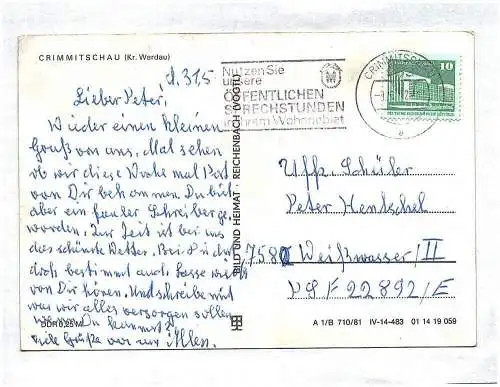 CRIMMITSCHAU (Kr. Werdau)
d. 31.5.
Lieber Peter!
Wieder einen kleinen
Gruß von uns. Mal sehen
ob wir diese Woche mal Post
von Dir bekommen. Du bist
aber ein fauler Schreiber ge-
worden. Zur Zeit ist bei uns
das schönste Wetter. Bei
doch bestimmt auch. Lasse mal
von Dir hören. Und schreibe mit
was wir alles versorgen sollen
wenn Du kommst.
Viele Grüße von uns Allen.
BILD UND HEIMAT · REICHENBACH (VOGTL)
Nutzen Sie
unsere
ÖFFENTLICHEN
SPRECHSTUNDEN
in Ihrem Wohngebiet
CRIMMITSCH
e
10
Uffz. Schüler
Peter Hentschel
7580 Weißwasser/II
PSF 22892/E
A 1/B 710/81 IV-14-483 01 14 19 059